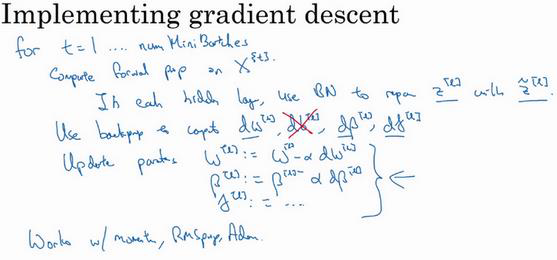 Implementing gradient descent
for t=1 .... num Mini Batches
Compute forward prop on X^{t}.
In each hidden lay, use BN to repar z^[l] with z̃^[l].
Use backprop to compt dw^[l], db^[l], dβ^[l], dγ^[l]
Update parates w^[l] := w^[l] - α dw^[l]
β^[l] := β^[l] - α dβ^[l]
γ^[l] := ... ←
Works w/ momentu, RMSprop, Adam.